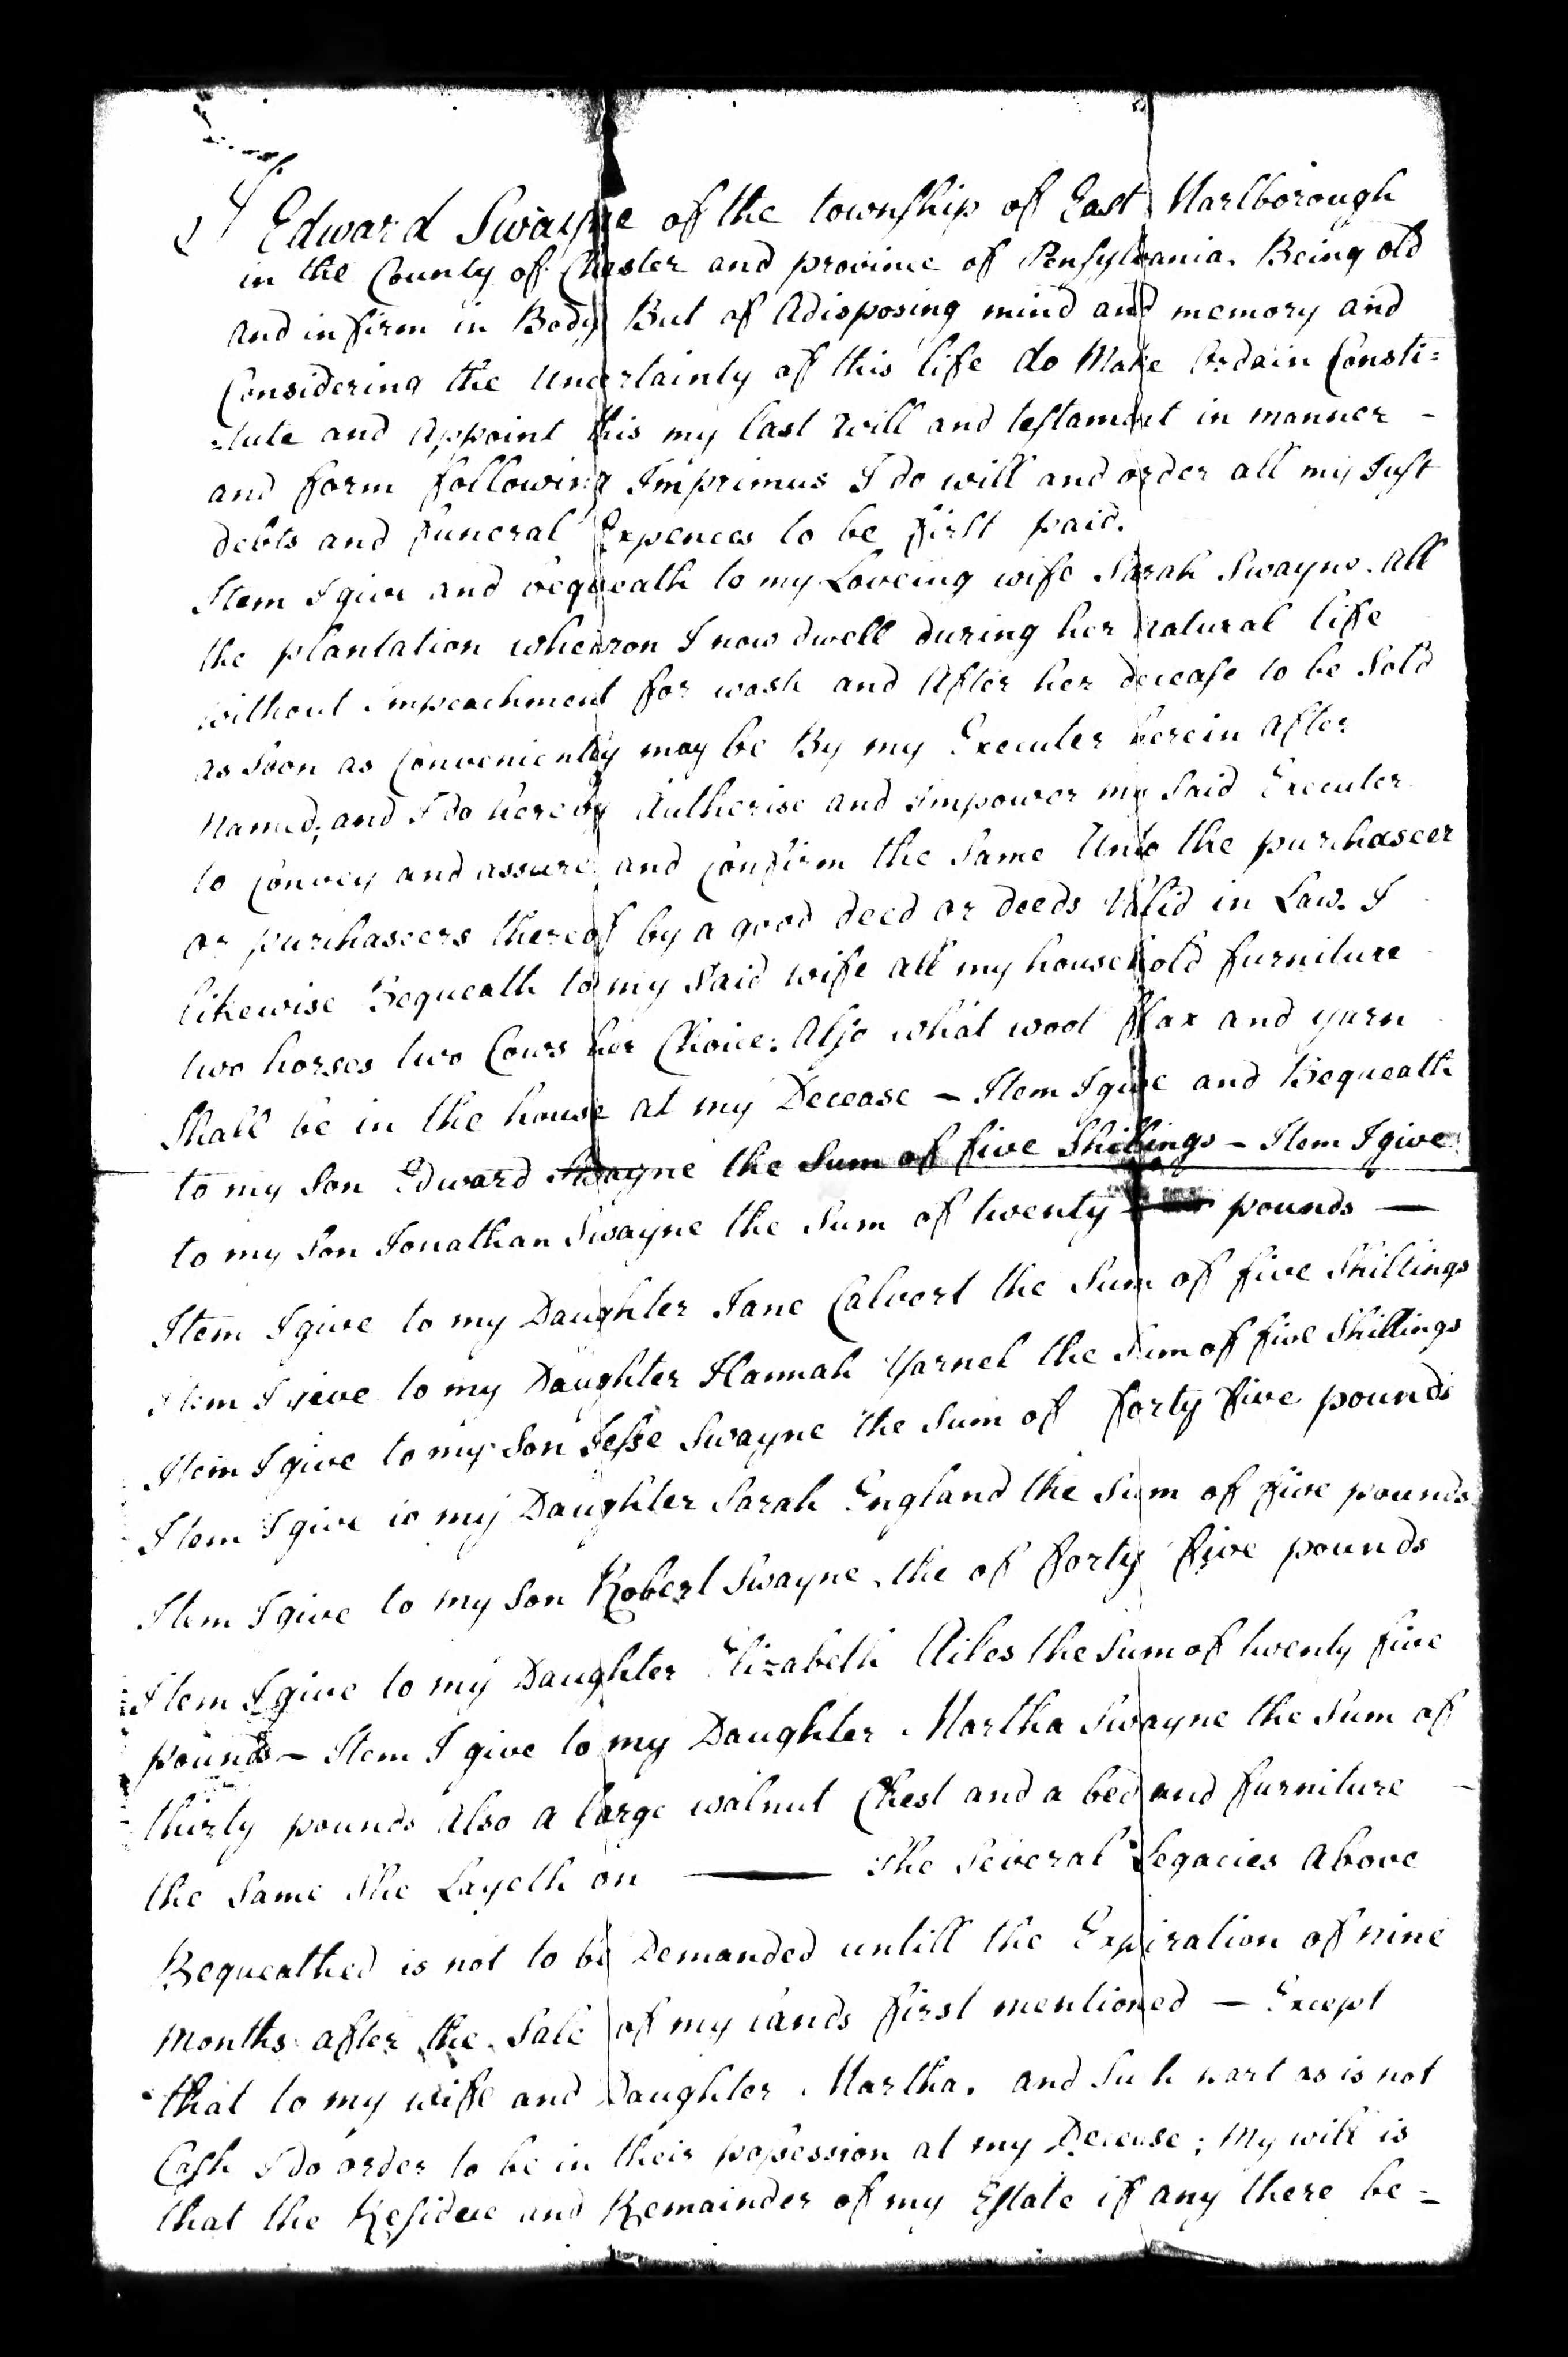 I Edward Swayne of the township of East Marlborough
in the County of Chester and province of Pensylvania. Being old
and infirm in Body But of Adisposing mind and memory and
Considering the Uncertainly of this life do Make Ordain Consti=
=tute and Appoint this my last Will and testament in manner -
and form following Imprimus I do will and order all my Just
debts and funeral Expences to be first paid.
Item I give and bequeath to my Loveing wife Sarah Swayne. All
the plantation wheareon I now dwell during her natural life
without impeachment for wast and After her decease to be Sold
as Soon as Conveniently may be By my Executer herein after
Named; and I do hereby Autherise and impower my Said Executer
to Convey and assure and Confirm the Same Unto the purchaseer
or purchaseers thereof by a good deed or deeds Valid in Law. I
likewise Bequeath to my Said wife all my household furniture
two horses two Cows her Choice: Also what wool fflax and yarn
Shall be in the house at my Decease - Item I give and Bequeath
to my Son Edward Swayne the Sum of five Shillings - Item I give
to my Son Jonathan Swayne the Sum of twenty pounds —
Item I give to my Daughter Jane Calvert the Sum of five Shillings
Item I geve to my Daughter Hannah Yarnel the Sum of five Shillings
Item I give to my Son Jesse Swayne the Sum of forty five pounds
Item I give to my Daughter Sarah England the Sum of five pounds
Item I give to my Son Robert Swayne. the of forty five pounds
Item I give to my Daughter Elizabeth Ailes the Sum of twenty five
pounds - Item I give to my Daughter Martha Swayne the Sum of
thirty pounds Also a large walnut Chest and a bed and furniture -
the Same She Layeth on — The Several Legacies Above
Bequeathed is not to be Demanded untill the Expiration of nine
Months after the Sale of my lands first mentioned — Except
that to my wife and Daughter Martha. and Such part as is not
Cash I do order to be in their possession at my Decease; My will is
that the Residue and Remainder of my Estate if any there be =